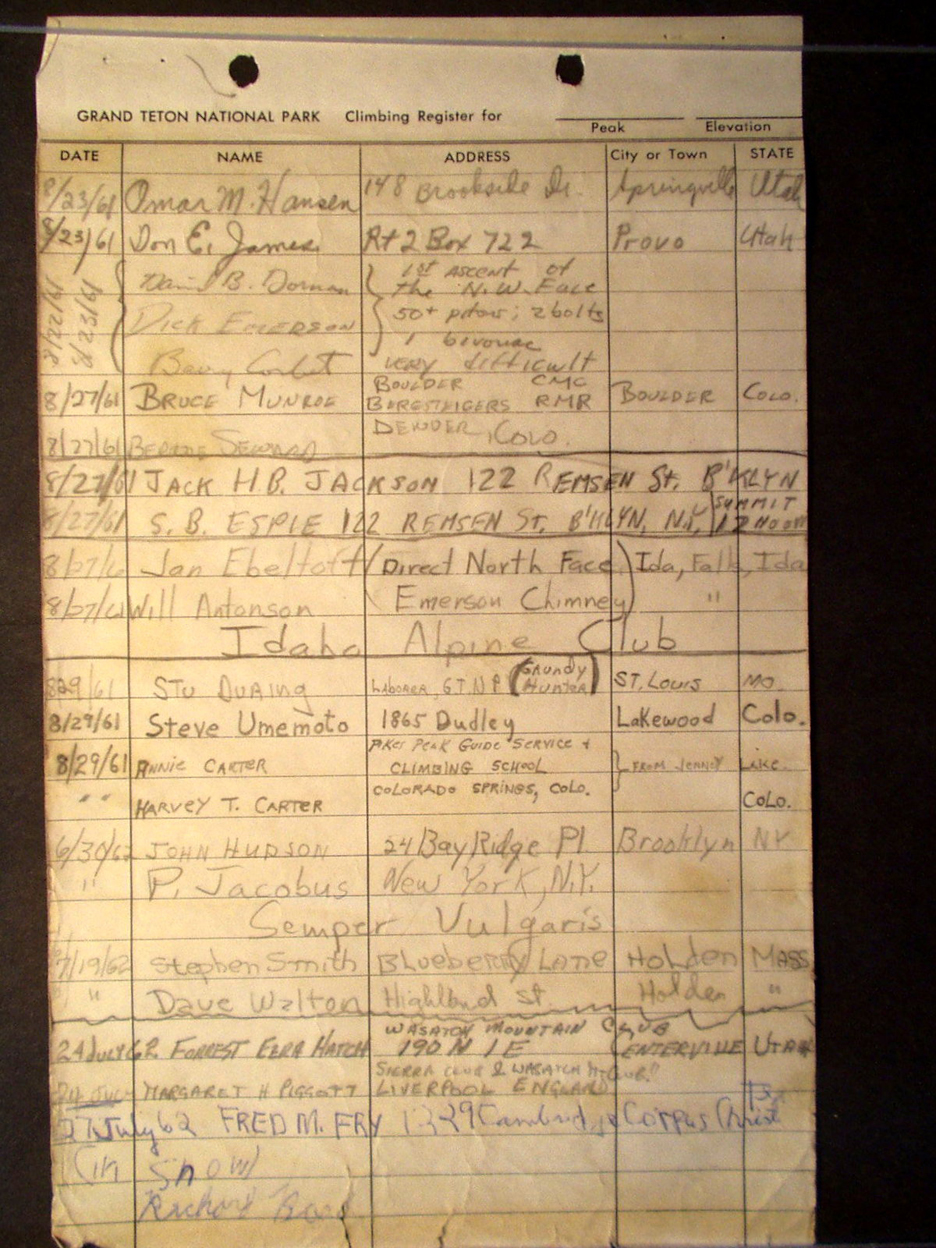 GRAND TETON NATIONAL PARK Climbing Register for
Peak Elevation
DATE NAME ADDRESS City or Town STATE
8/23/61 Omar M. Hansen 148 Brookside Dr. Springville Utah
8/23/61 Don E. James Rt 2 Box 722 Provo Utah
8/22/61 8/23/61 { David B. Dornan } 1st ascent of
the N.W. Face
DICK EMERSON 50+ pitons; 2 bolts
1 bivouac
Barry Corbet very difficult
8/27/61 BRUCE MUNROE BOULDER CMC BOULDER COLO.
BERGSTEIGERS RMR
8/27/61 SEWARD DENVER, COLO.
8/27/61 JACK H.B. JACKSON 122 REMSEN St. B'KLYN
8/27/61 S. B. ESPIE 122 REMSEN ST. B'KLYN, N.Y. SUMMIT
12 NOON
8/27/6 Jan Ebeltoft (Direct North Face) Ida, Falls, Ida
8/27/61 Will Antonson Emerson Chimney "
Idaho Alpine Club
829/61 STU DURING LABORER, G.T.N.P. (GRUNDY HUNTER) ST. LOUIS MO.
8/29/61 Steve Umemoto 1865 Dudley Lakewood Colo.
8/29/61 ANNIE CARTER PIKES PEAK GUIDE SERVICE +
CLIMBING SCHOOL } FROM JENNEY LAKE
" " HARVEY T. CARTER COLORADO SPRINGS, COLO. COLO.
6/30/62 JOHN HUDSON 24 Bay Ridge Pl. Brooklyn NY
" P. Jacobus New York, N.Y.
Semper Vulgaris
7/19/62 Stephen Smith BLueberry LANE HoLden MASS
" Dave Walton Highland St. Holden "
WASATCH MOUNTAIN CLUB
24 JULY 62 FORREST EZRA HATCH 190 N 1 E CENTERVILLE UTAH
SIERRA CLUB & WASATCH MT CLUB.
24 JULY MARGARET H PIGGOTT LIVERPOOL ENGLAND
27 July 62 FRED M. FRY 1329 Corpus Christi Tex
(in Snow)
Richard